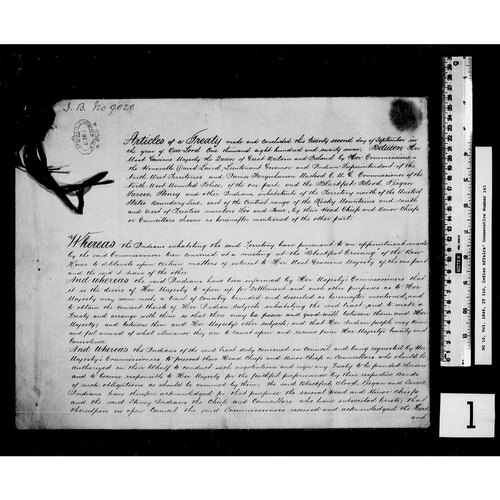 I. B. No 9020
Articles of a Treaty made and concluded this twenty second day of September in
the year of Our Lord One thousand eight hundred and seventy seven, Between Her
Most Gracious Majesty the Queen of Great Britain and Ireland by Her Commissioners
the Honorable David Laird, Lieutenant Governor and Indian Superintendent of the
North West Territories, and James Farquharson Macleod C.M.G. Commissioner of the
North West Mounted Police, of the one part, and the Blackfeet Blood, Piegan
Sarcee, Stoney and other Indians, inhabitants of the Territory north of the United
States Boundary Line, east of the Central range of the Rocky Mountains and south
and west of Treaties numbers Six and Four, by their Head Chiefs and Minor Chiefs
or Councillors chosen as hereinafter mentioned of the other part.
Whereas the Indians inhabiting the said Territory have pursuant to an appointment made
by the said Commissioners been convened at a meeting at the Blackfoot Crossing of the Bow
River to deliberate upon certain matters of interest to Her Most Gracious Majesty of the one part
and the said Indians of the other
And whereas the said Indians have been informed by Her Majesty's Commissioners that
it is the desire of Her Majesty to open up for Settlement and such other purposes as to Her
Majesty may seem meet, a tract of Country bounded and described as hereinafter mentioned, and
to obtain the consent thereto of Her Indian Subjects inhabiting the said tract, and to make a
Treaty and arrange with them so that there may be peace and good will between them and Her
Majesty, and between them and Her Majesty's other subjects, and that Her Indian people may know
and feel assured of what allowance they are to count upon and receive from Her Majesty's bounty and
benevolence
And Whereas the Indians of the said tract duly convened in Council and being requested by Her
Majesty's Commissioners to present their Head Chiefs and Minor Chiefs or Councillors who should be
authorized on their behalf to conduct such negotiations and sign any Treaty to be founded thereon
and to become responsible to Her Majesty for the faithful performance by their respective Bands
of such obligations as should be assumed by them; the said Blackfeet, Blood, Piegan and Sarcee
Indians have therefore acknowledged for that purpose the several Head and Minor Chiefs
and the said Stoney Indians the Chiefs and Councillors who have subscribed hereto; that
thereupon in open Council the said Commissioners received and acknowledged the Head
and
RG 10, Vol. 1848, IT 300, Indian Affairs' Consecutive Number 163
1